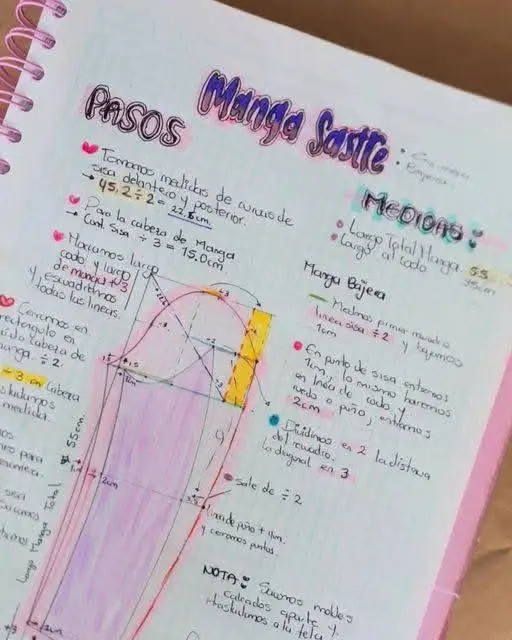 Manga Sastre
PASOS
Tomamos medidas de curvas de
sisa delantero y posterior.
→ 45.2 ÷ 2 = 22.6cm
Para la cabeza de Manga
→ Cont. Sisa ÷ 3 = 15.0cm
Marcamos largo
codo y largo
de manga +3
y escuadramos
todas las lineas.
Cerramos en
rectangulo en
cabeza de
÷ 2.
+3 cm Cabeza
medida.
para
sisa
55cm
Largo Manga Total
2cm
MEDIDAS:
Largo Total Manga. 55
Largo al codo 35cm
Manga Bajera
Medimos primer recuadro
linea sisa ÷2 y bajamos
1cm
En punto de sisa entramos
1cm, lo mismo haremos
en linea de codo y
ruedo o puño, entramos
2cm
Dividimos en 2 la distancia
del recuadro.
la diagonal en 3
Sale de ÷ 2
linea de puño + 1cm.
y cerramos puntos.
NOTA: Sacamos moldes
calcados aparte y
trasladamos a la tela